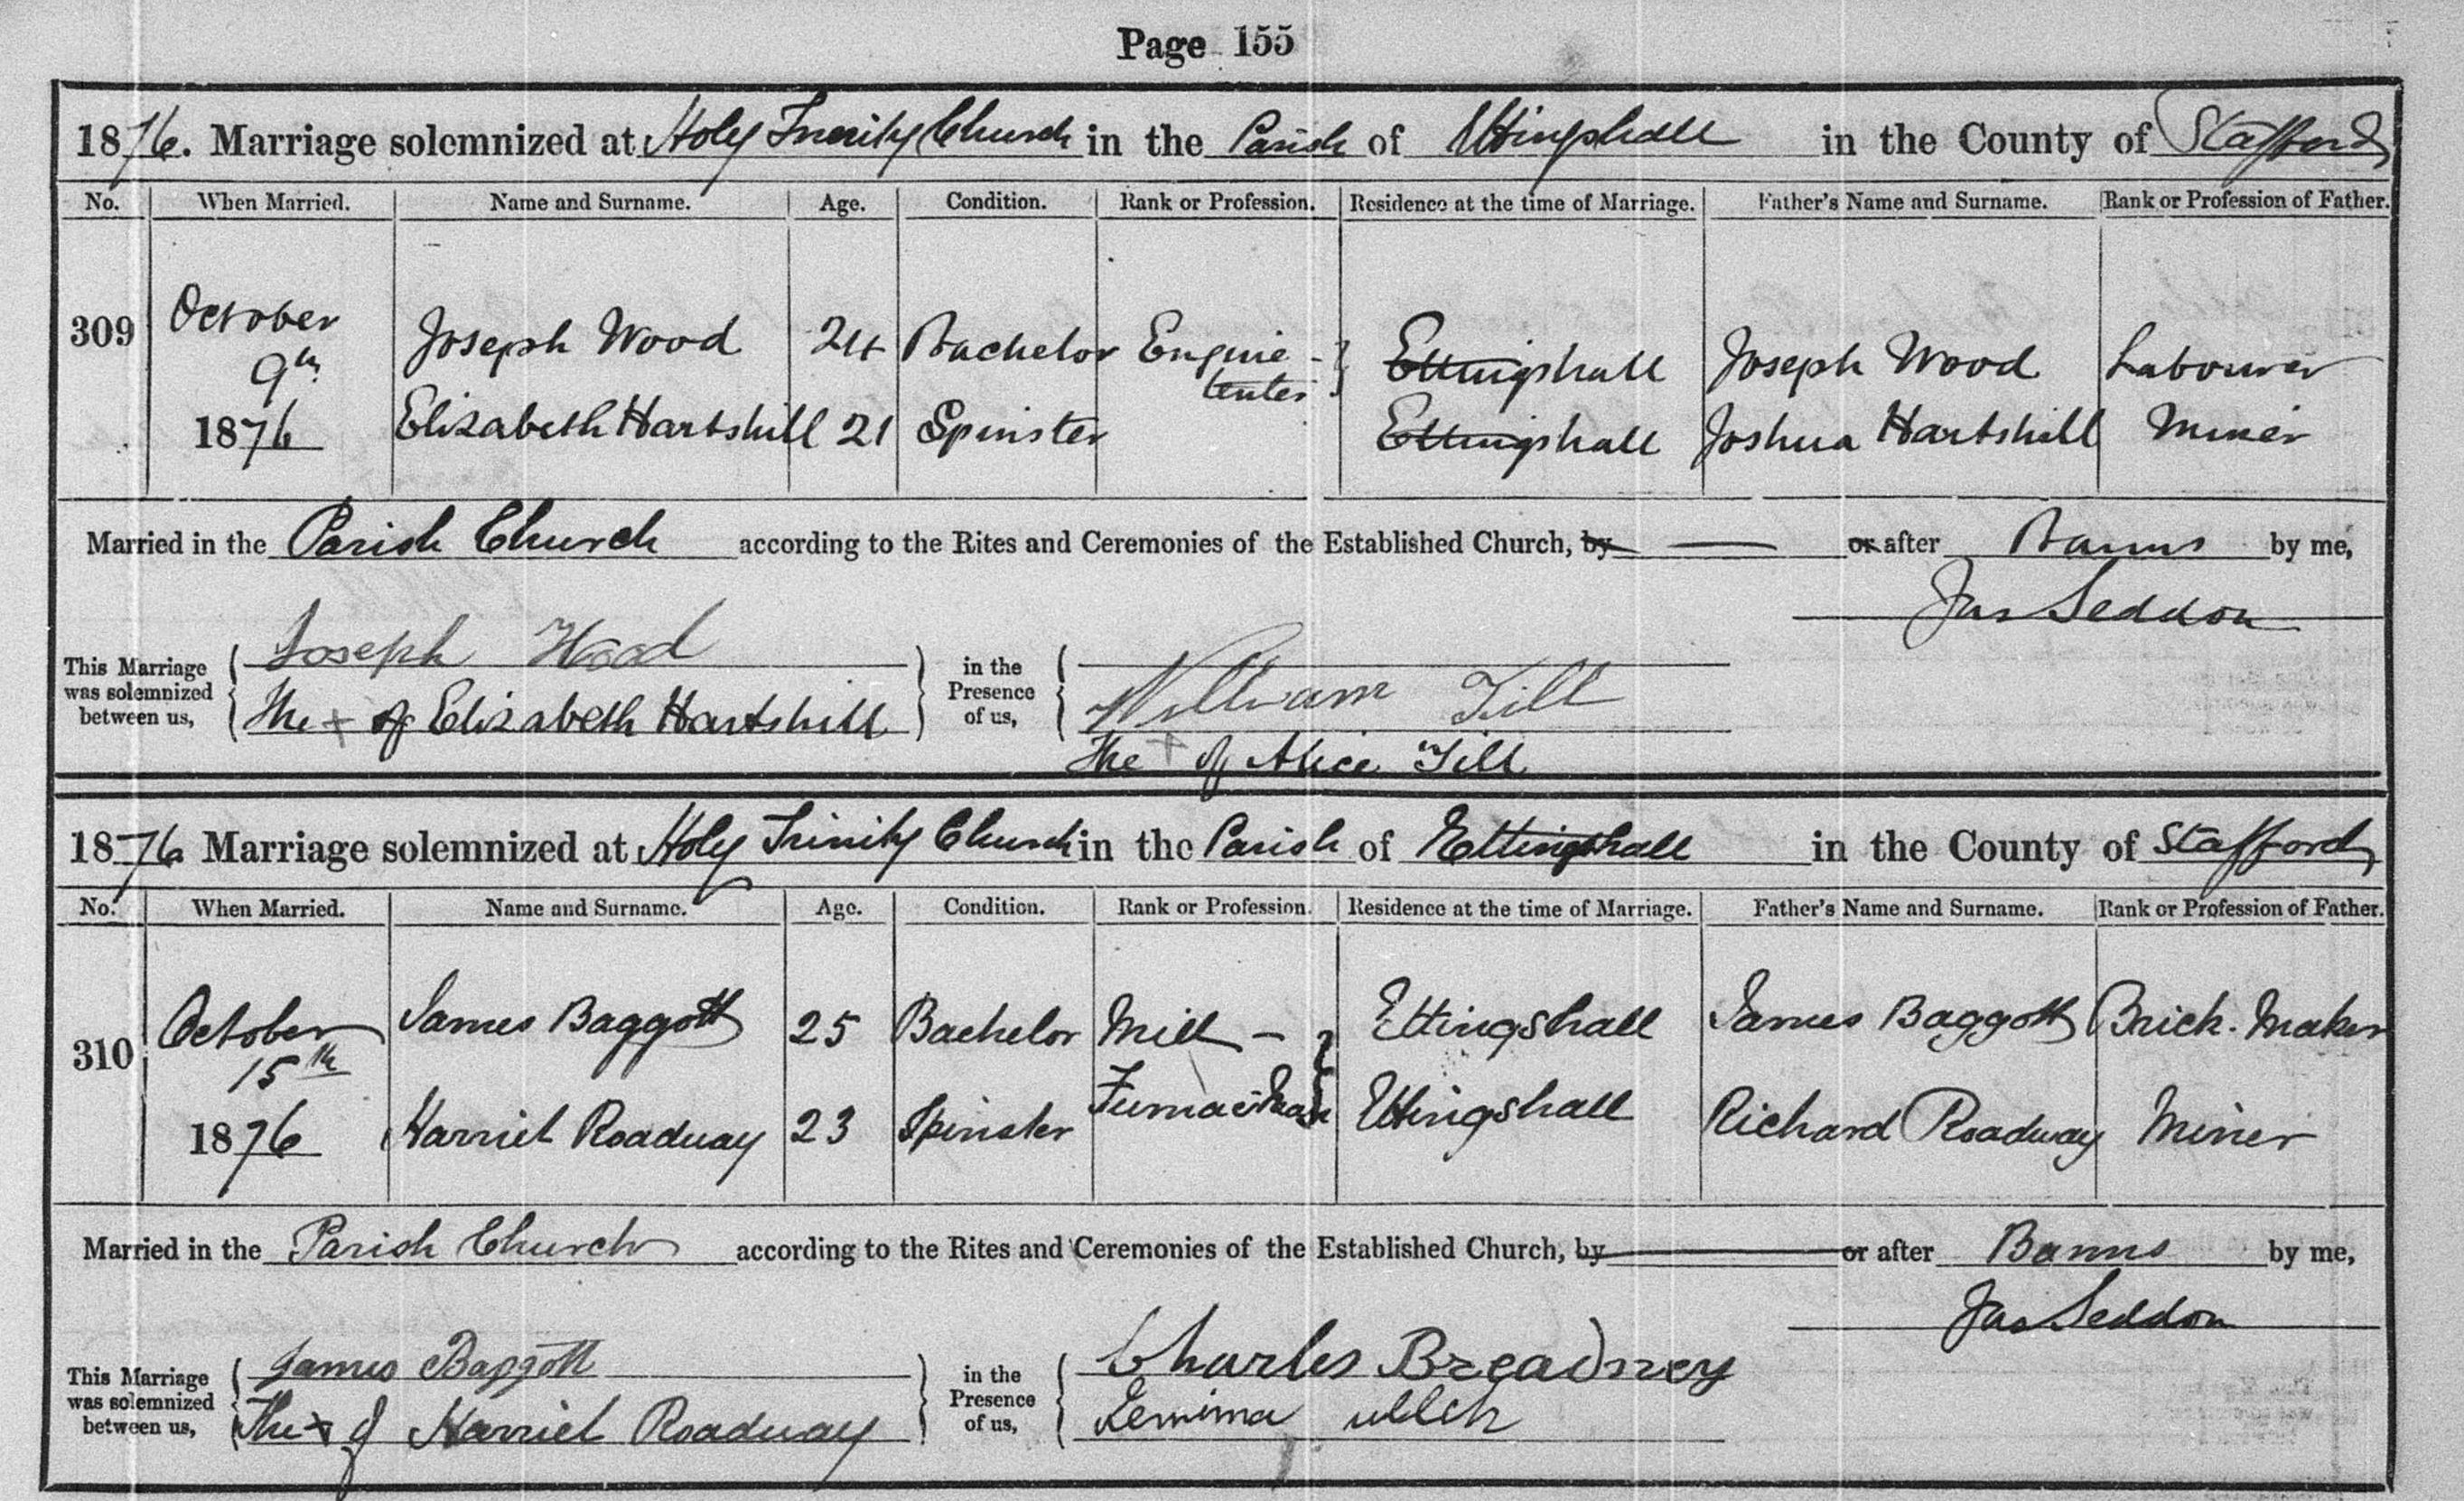 Page 155
1876. Marriage solemnized at Holy Trinity Church in the Parish of Ettingshall in the County of Stafford
No. When Married. Name and Surname. Age. Condition. Rank or Profession. Residence at the time of Marriage. Father's Name and Surname. Rank or Profession of Father.
309 October 9th 1876 Joseph Wood 24 Bachelor Engine - tenter Ettingshall Joseph Wood Labourer
Elizabeth Hartshill 21 Spinster Ettingshall Joshua Hartshill Miner
Married in the Parish Church according to the Rites and Ceremonies of the Established Church, by or after Banns by me,
Jas Seddon
This Marriage was solemnized between us, Joseph Wood in the Presence of us, William Till
The + of Elizabeth Hartshill
The + of Alice Till
1876 Marriage solemnized at Holy Trinity Church in the Parish of Ettingshall in the County of Stafford
No. When Married. Name and Surname. Age. Condition. Rank or Profession. Residence at the time of Marriage. Father's Name and Surname. Rank or Profession of Father.
310 October 15th 1876 James Baggott 25 Bachelor Mill - Furnaceman Ettingshall James Baggott Brick-Maker
Harriet Roadway 23 Spinster Ettingshall Richard Roadway Miner
Married in the Parish Church according to the Rites and Ceremonies of the Established Church, by or after Banns by me,
Jas Seddon
This Marriage was solemnized between us, James Baggott in the Presence of us, Charles Breadney
The x of Harriet Roadway